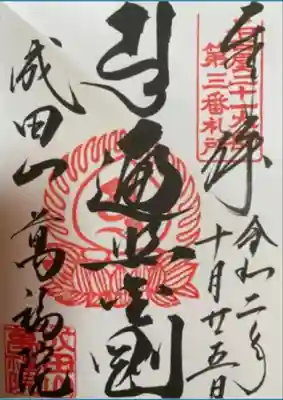 奉拝
第三番札所
令和二年
十月廿五日
遍照金剛
成田山萬福院